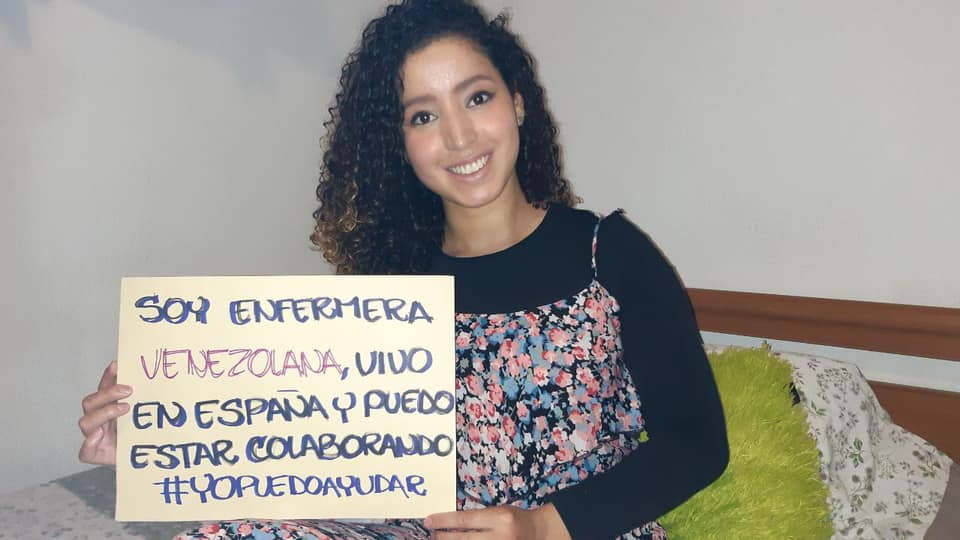 SOY ENFERMERA
VENEZOLANA, VIVO
EN ESPAÑA Y PUEDO
ESTAR COLABORANDO
#YOPUEDOAYUDAR